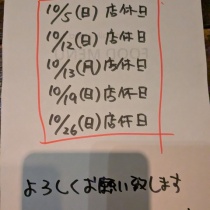 10/5(日)店休日
10/12(日)店休日
10/13(月)店休日
10/19(日)店休日
10/26(日)店休日
よろしくお願い致します